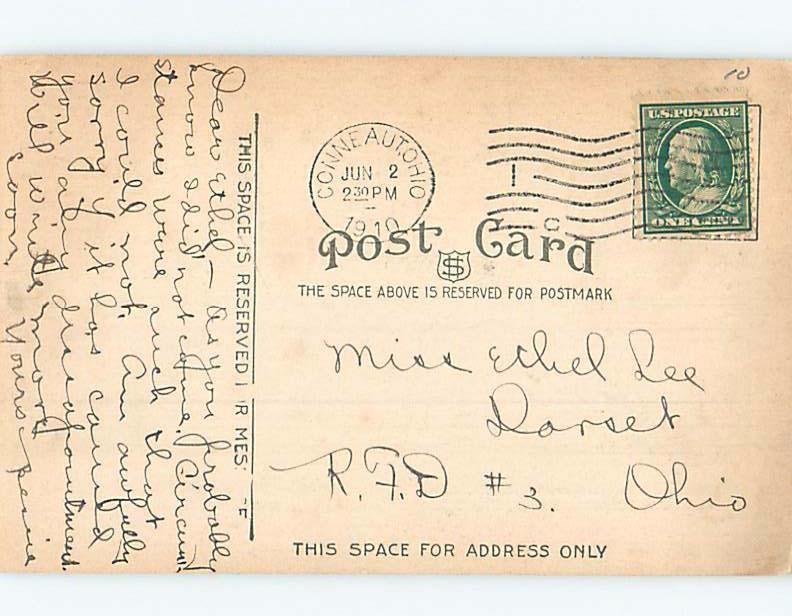 10
U.S. POSTAGE
ONE CENT
CONNEAUT OHIO
JUN 2
2 30 PM
1910
C
Post Card
THE SPACE ABOVE IS RESERVED FOR POSTMARK
Miss Ethel Lee
Dorset
R.F.D #3. Ohio
THIS SPACE FOR ADDRESS ONLY
THIS SPACE IS RESERVED R MES
Dear Ethel – As you probably
know I did not come. Circum
stances were such that
I could not. Am awfully
sorry if it has caused
you any disapointment.
Will write more
soon. Yours Bessie